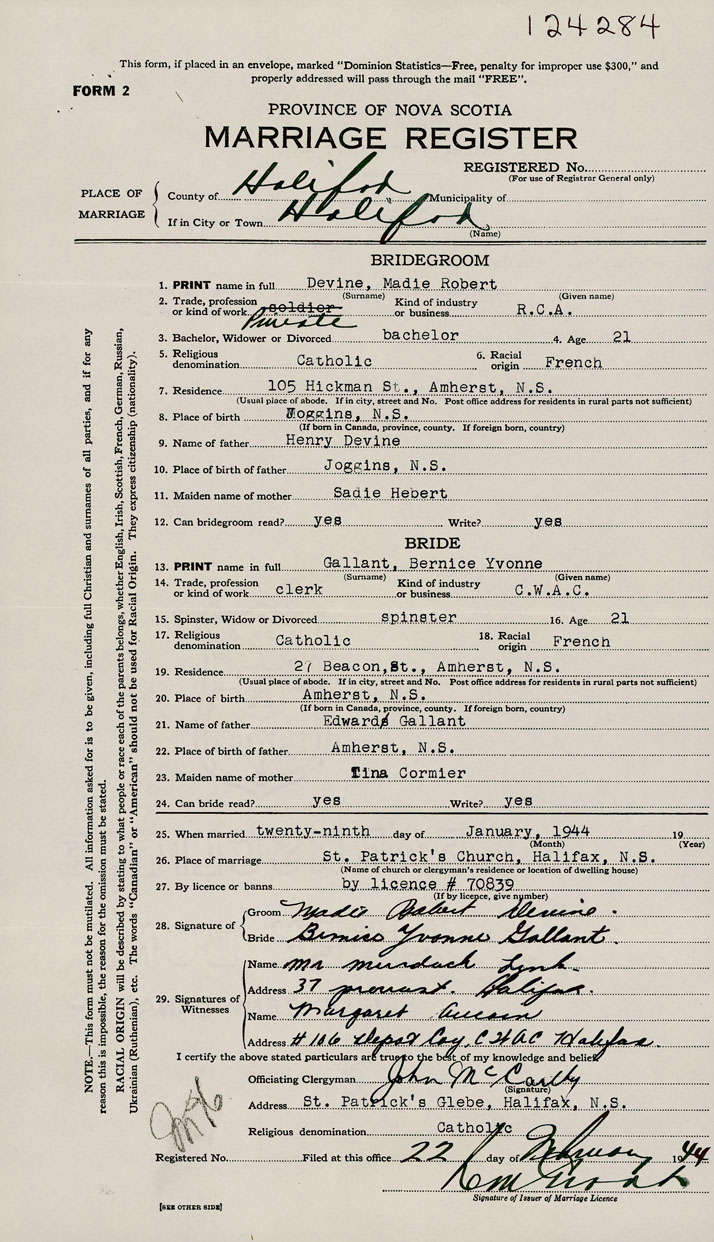 124284
This form, if placed in an envelope, marked "Dominion Statistics—Free, penalty for improper use $300," and
properly addressed will pass through the mail "FREE".
FORM 2
PROVINCE OF NOVA SCOTIA
MARRIAGE REGISTER
REGISTERED No.
(For use of Registrar General only)
PLACE OF MARRIAGE
County of Halifax Municipality of
If in City or Town Halifax
(Name)
BRIDEGROOM
1. PRINT name in full Devine, Madie Robert
(Surname) (Given name)
2. Trade, profession or kind of work soldier Private Kind of industry or business R.C.A.
3. Bachelor, Widower or Divorced bachelor 4. Age 21
5. Religious denomination Catholic 6. Racial origin French
7. Residence 105 Hickman St., Amherst, N.S.
(Usual place of abode. If in city, street and No. Post office address for residents in rural parts not sufficient)
8. Place of birth Joggins, N.S.
(If born in Canada, province, county. If foreign born, country)
9. Name of father Henry Devine
10. Place of birth of father Joggins, N.S.
11. Maiden name of mother Sadie Hebert
12. Can bridegroom read? yes Write? yes
BRIDE
13. PRINT name in full Gallant, Bernice Yvonne
(Surname) (Given name)
14. Trade, profession or kind of work clerk Kind of industry or business C.W.A.C.
15. Spinster, Widow or Divorced spinster 16. Age 21
17. Religious denomination Catholic 18. Racial origin French
19. Residence 27 Beacon,St., Amherst, N.S.
(Usual place of abode. If in city, street and No. Post office address for residents in rural parts not sufficient)
20. Place of birth Amherst, N.S.
(If born in Canada, province, county. If foreign born, country)
21. Name of father Edward Gallant
22. Place of birth of father Amherst, N.S.
23. Maiden name of mother Tina Cormier
24. Can bride read? yes Write? yes
25. When married twenty-ninth day of January, 1944 19
(Month) (Year)
26. Place of marriage St. Patrick's Church, Halifax, N.S.
(Name of church or clergyman's residence or location of dwelling house)
27. By licence or banns by licence # 70839
(If by licence, give number)
28. Signature of
Groom Madie Robert Devine.
Bride Bernice Yvonne Gallant.
29. Signatures of Witnesses
Name Mr Murdock Lynk.
Address 37 Halifax.
Name Margaret
Address #106 Depot Coy, CWAC Halifax.
I certify the above stated particulars are true to the best of my knowledge and belief.
Officiating Clergyman John McCarthy
(Signature)
Address St. Patrick's Glebe, Halifax, N.S.
Religious denomination Catholic
Registered No. Filed at this office 22 day of February 1944
Signature of Issuer of Marriage Licence
[SEE OTHER SIDE]
NOTE.—This form must not be mutilated. All information asked for is to be given, including full Christian and surnames of all parties, and if for any
reason this is impossible, the reason for the omission must be stated.
RACIAL ORIGIN will be described by stating to what people or race each of the parents belongs, whether English, Irish, Scottish, French, German, Russian,
Ukrainian (Ruthenian), etc. The words "Canadian" or "American" should not be used for Racial Origin. They express citizenship (nationality).